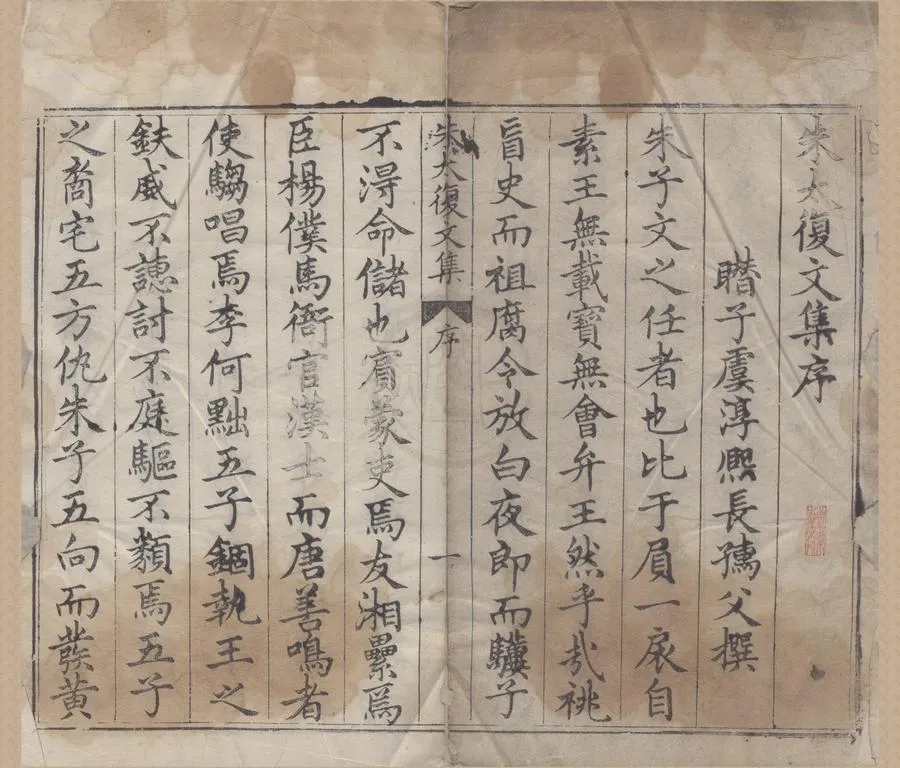 朱太復文集序
瞎子虞淳熈長孺父撰
朱子文之任者也比于眉一扆自
素王無載寳無會弁王然乎哉祧
盲史而祖腐令放白夜郎而驥子
朱太復文集
序
一
不淂命儲也賔蒙吏焉友湘纍焉
臣楊僕馬衙官漢士而唐善鳴者
使騶唱焉李何黜五子錮執王之
鈇威不譓討不庭驅不纇焉五子
之裔宅五方仇朱子五向而蕟黄